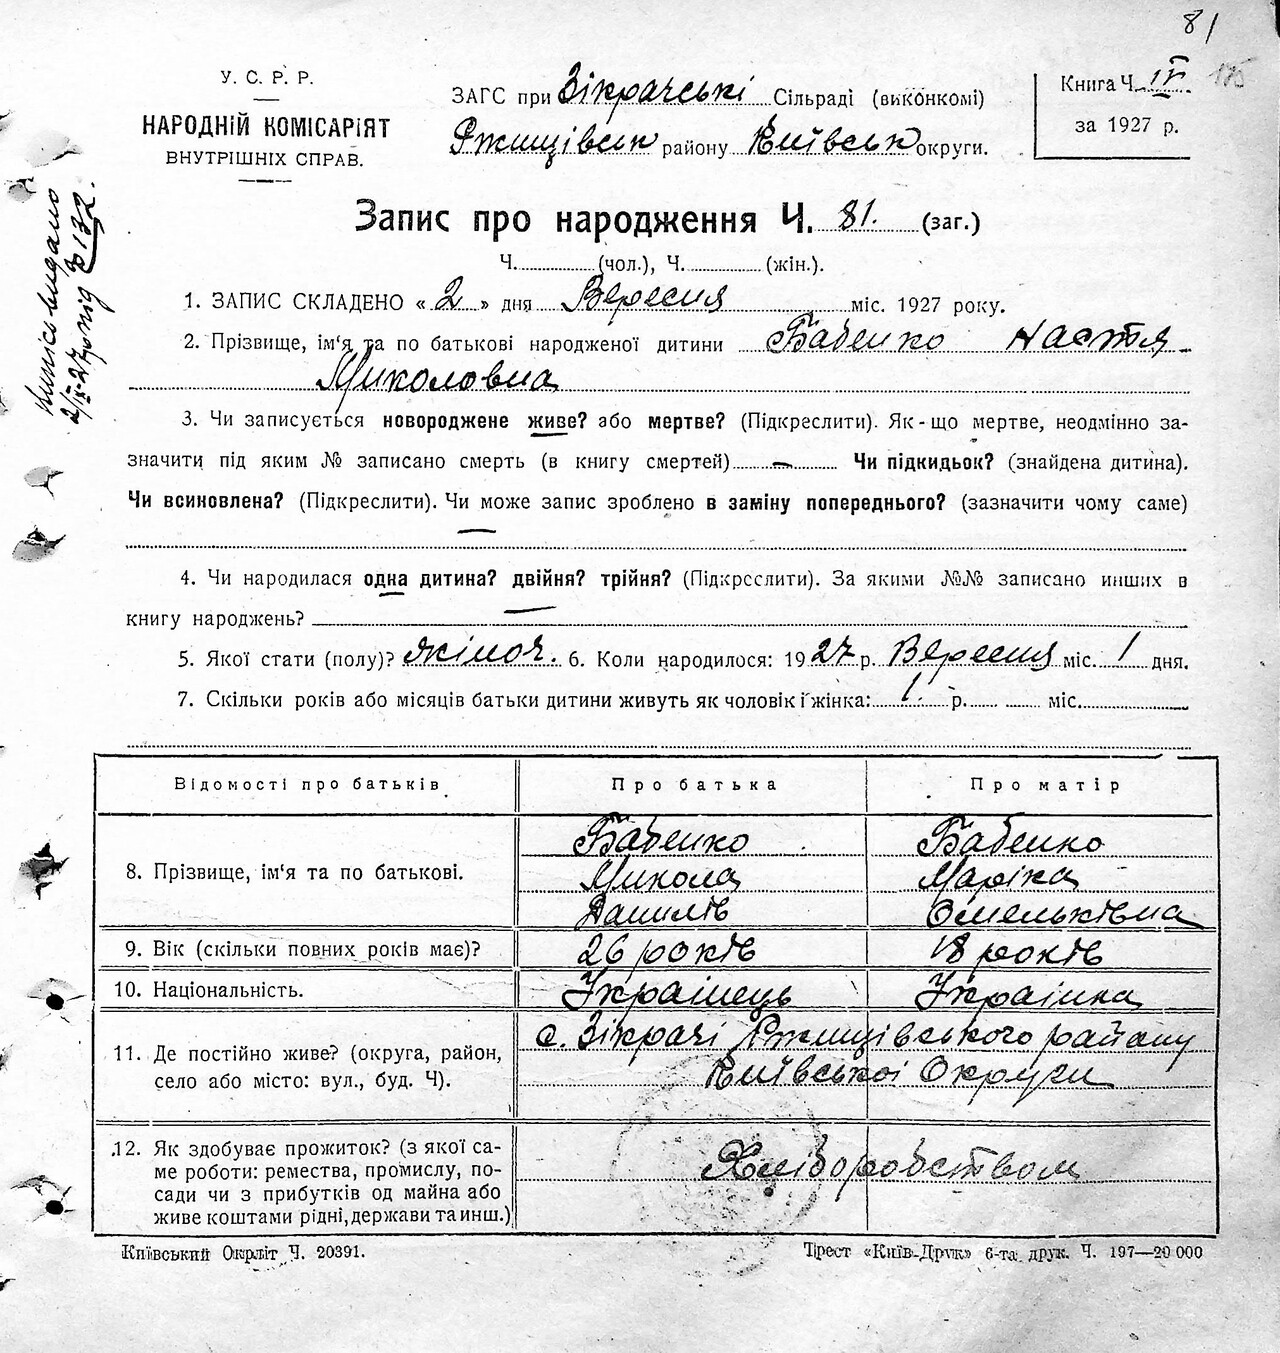 81
У. С. Р. Р.
НАРОДНІЙ КОМІСАРІЯТ
ВНУТРІШНІХ СПРАВ.
ЗАГС при Зікрачські Сільраді (виконкомі)
Ржищівськ району Київськ округи.
Книга Ч. IV 115
за 1927 р.
Випись видано
2/IX-27р під № 132.
Запис про народження Ч. 81. (заг.)
Ч. (чол.), Ч. (жін.).
1. ЗАПИС СКЛАДЕНО « 2 » дня Вересня міс. 1927 року.
2. Прізвище, ім'я та по батькові народженої дитини Бабенко Настя
Миколовна
3. Чи записується новороджене живе? або мертве? (Підкреслити). Як-що мертве, неодмінно за-
значити під яким № записано смерть (в книгу смертей) — Чи підкидьок? (знайдена дитина).
Чи всиновлена? (Підкреслити). Чи може запис зроблено в заміну попереднього? (зазначити чому саме)
4. Чи народилася одна дитина? двійня? трійня? (Підкреслити). За якими №№ записано инших в
книгу народжень?
5. Якої стати (полу)? жіноч. 6. Коли народилося: 1927 р. Вересня міс. 1 дня.
7. Скільки років або місяців батьки дитини живуть як чоловік і жінка: 1. р. міс.
Відомості про батьків. Про батька Про матір
8. Прізвище, ім'я та по батькові.
Бабенко Бабенко
Микола Маріка
Данилів Омельківна
9. Вік (скільки повних років має)? 26 років 18 років
10. Національність. Українець Українка
11. Де постійно живе? (округа, район,
село або місто: вул., буд. Ч).
с. Зікрачі Ржищівського району
Київської Округи
12. Як здобуває прожиток? (з якої са-
ме роботи: ремества, промислу, по-
сади чи з прибутків од майна або
живе коштами рідні, держави та инш.)
Хліборобством
Київський Окрліт Ч. 20391.
Трест «Київ-Друк» 6-та друк. Ч. 197—20 000